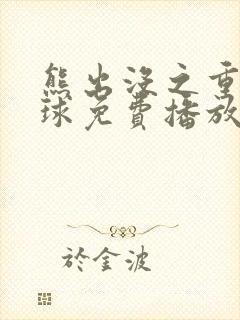 熊出没之重
球免費播放
於金波